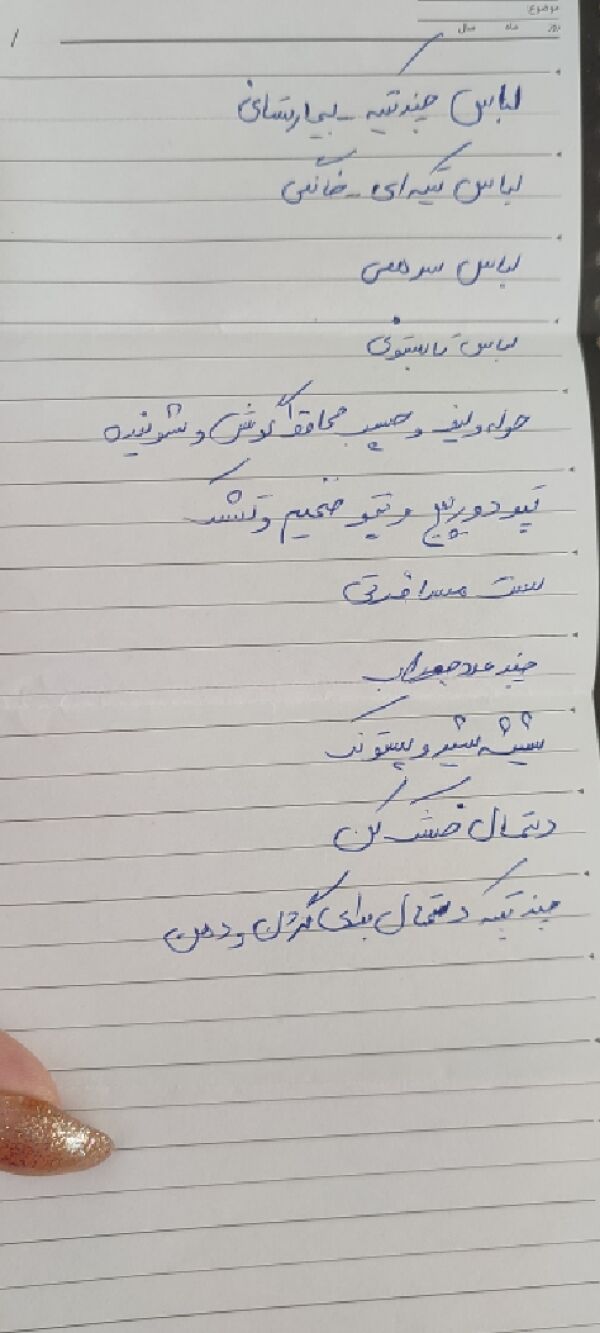 موضوع:
روز ماه سال
لباس چند تیکه - بیمارستانی
لباس تیکه ای - خانگی
لباس سرهمی
لباس تابستونی
حوله و لیف و چسب محافظ گوش و شوینده
پتو دورپیچ و پتو ضخیم و تشک
ست مسافرتی
چند عدد جوراب
شیشه شیر و پستونک
دستمال خشک کن
چند تیکه دستمال برای گردن و دهن